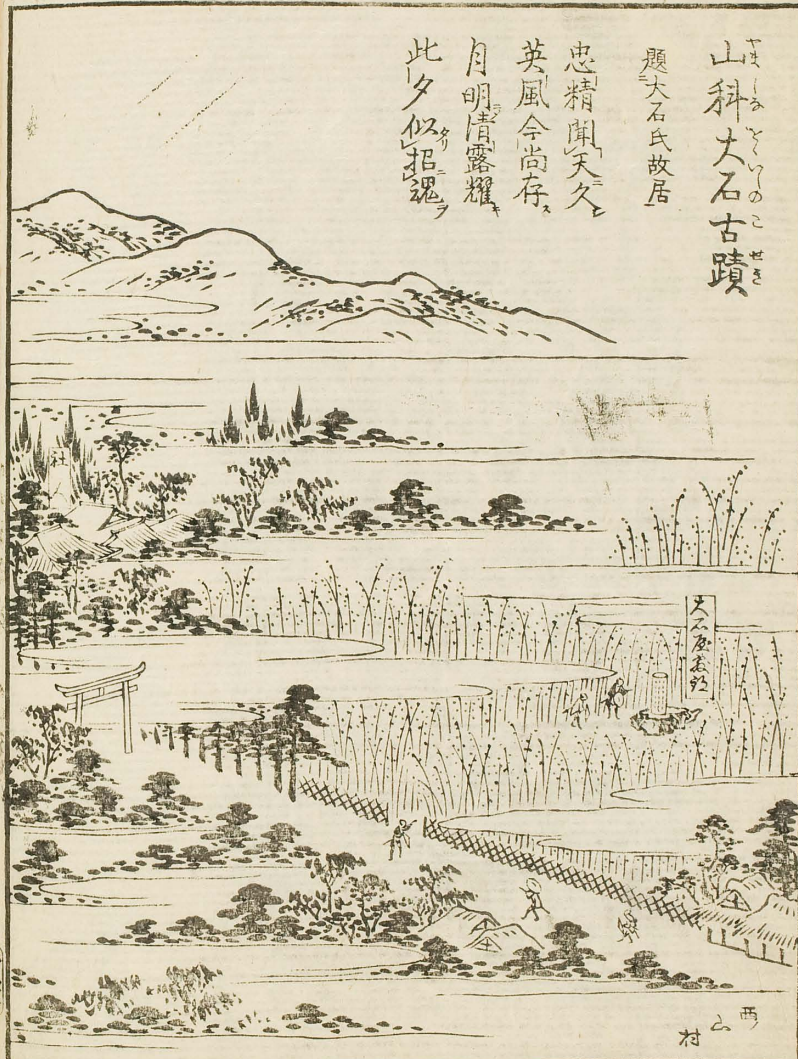 山科大石古蹟
題大石氏故居
忠精聞天久
英風今尚存
月明清露耀
此夕似招魂
大石屋敷
社人
西山村